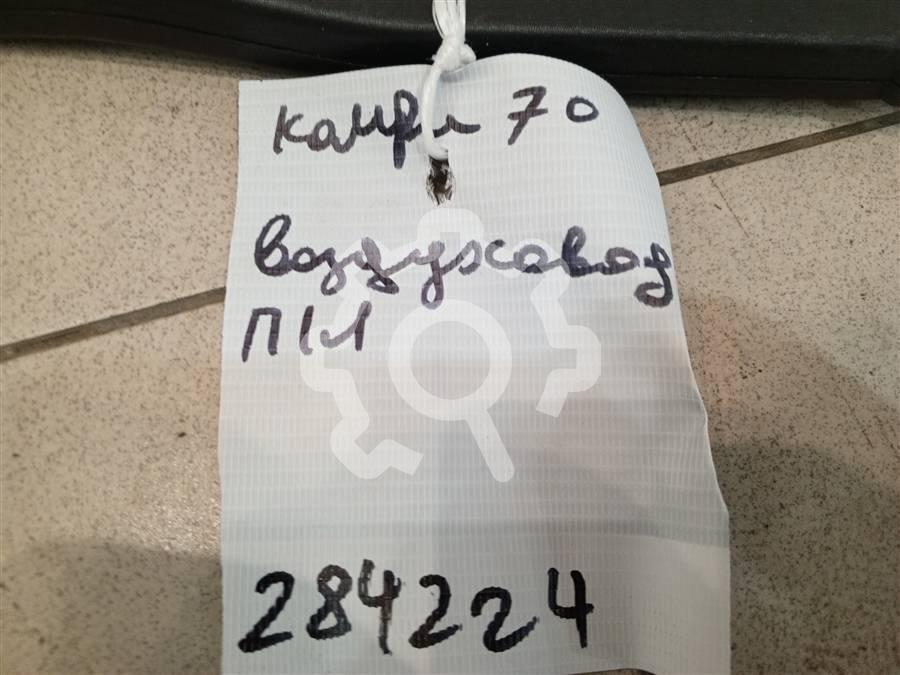 Камри 70
Воздуховод
П/Л
284224